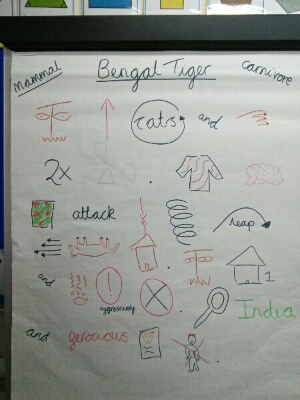 mammal Bengal Tiger carnivore
eats and
2x
attack leap
1
and
aggressively India
and ferocious